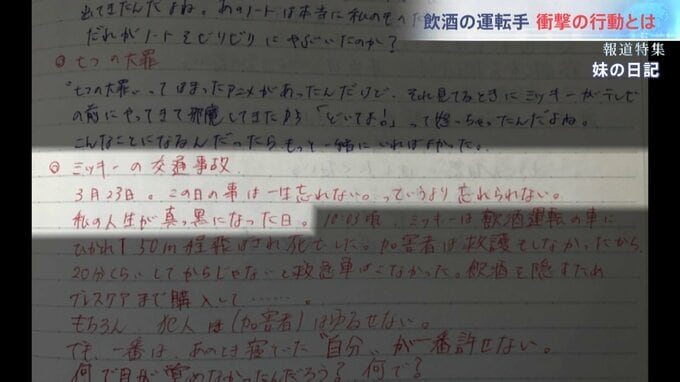 飲酒の運転手 衝撃の行動とは
報道特集
妹の日記
出てきたんだよね。あのノートは本当に私のもの
だれがノートをビリビリにやぶいたのか?
◎ 七つの大罪
"七つの大罪"ってはまったアニメがあったんだけど、それ見てるときにミッキーがテレビ
の前にやってきて邪魔してきたから「どいてよ!」って怒っちゃったんだよね。
こんなことになるんだったらもっと一緒にいればよかった。
◎ ミッキーの交通事故
3月23日。この日の事は一生忘れない。っていうより忘れられない。
私の人生が真っ黒になった日。10:03頃、ミッキーは飲酒運転の車に
ひかれ 50m程飛ばされ死亡した。加害者は救護をしなかったから
20分くらいしてからじゃないと救急車はこなかった。飲酒を隠すため
ブレスケアまで購入して……。
もちろん、犯人は(加害者)はゆるせない。
でも、一番は、あのとき寝ていた"自分"が一番許せない。
何で目が覚めなかったんだろう?何で?